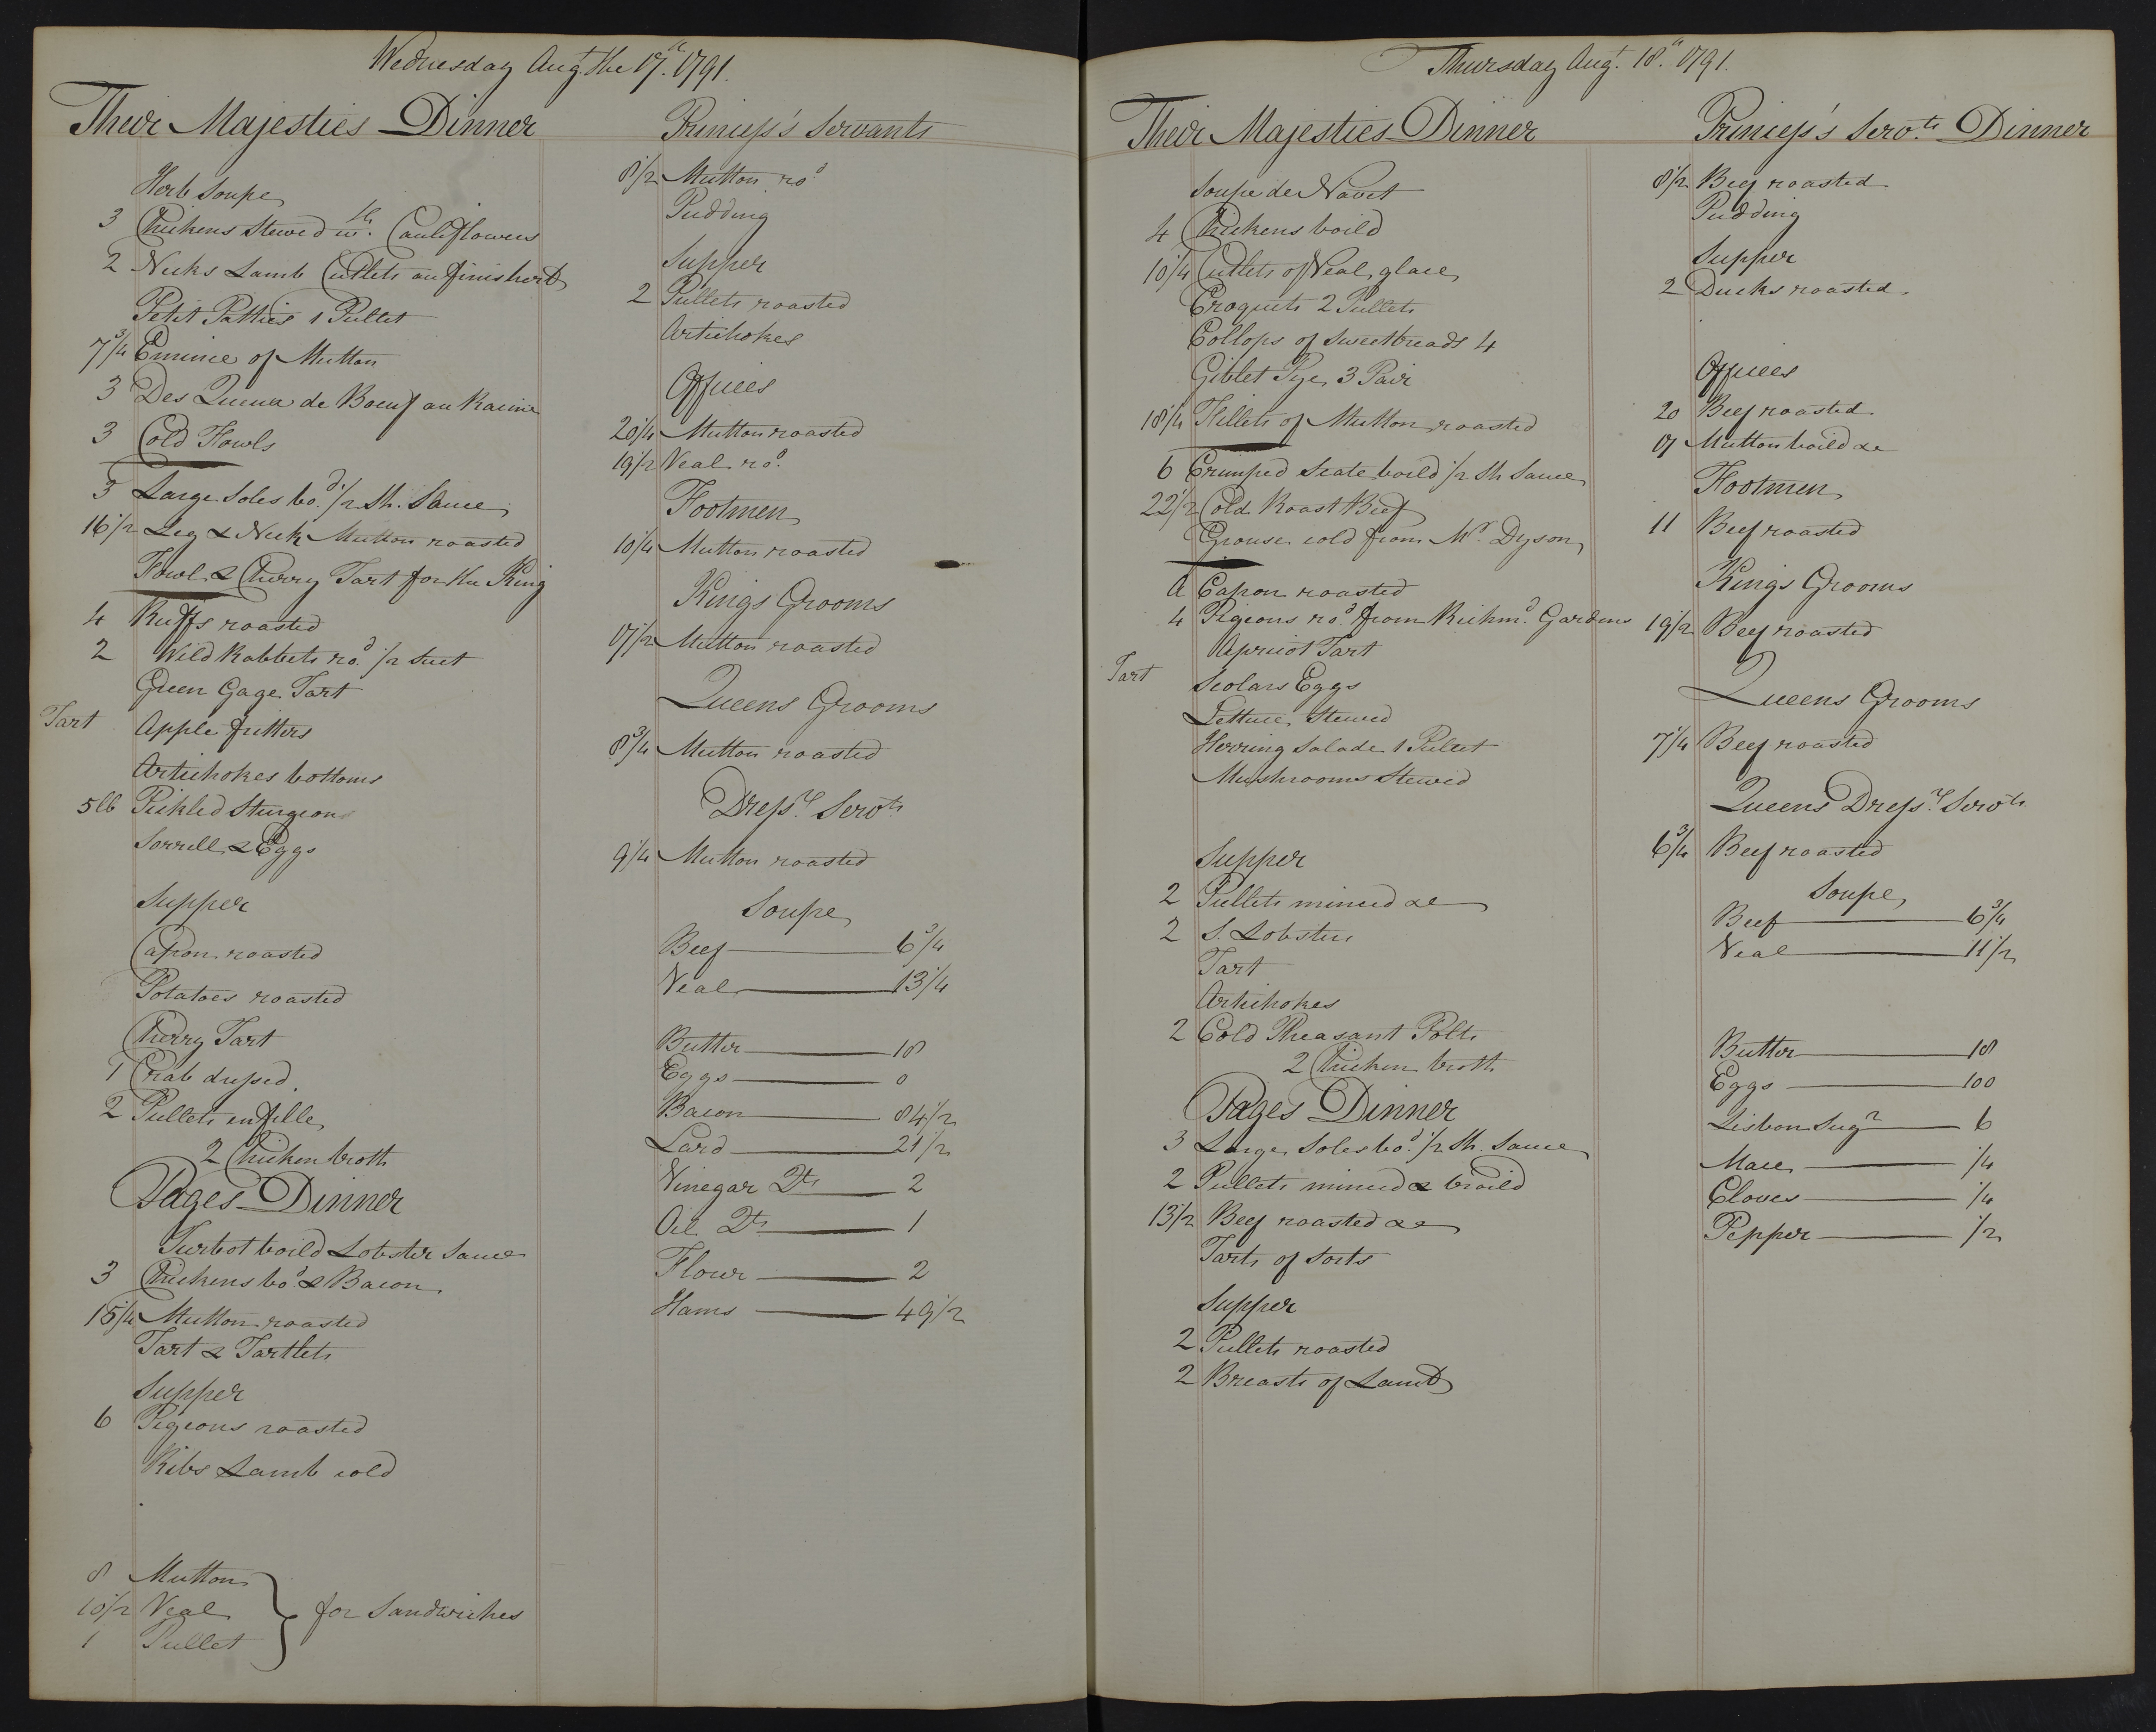 Wednesday Aug.t the 17.th 1791.
Their Majesties Dinner
Herb Soupe
3 Chickens Stewed w.th Cauliflowers
2 Necks Lamb Cutlets au finishert
Petit Patties 1 Pullet
7 3/4 Emince of Mutton
3 Des Queux de Boeuf au Racine
3 Cold Fowls
3 Large Soles bo.d 1/2 Sh. Sauce
16 1/2 Leg & Neck Mutton roasted
Fowl & Cherry Tart for the King
4 Ruffs roasted
2 Wild Rabbets ro.d 1/2 Suet
Green Gage Tart
Tart Apple fritters
Artichokes bottoms
5 lb Pickled Sturgeon
Sorrell & Eggs
Supper
Capon roasted
Potatoes roasted
Cherry Tart
1 Crab dressed
2 Pullets en fille
2 Chicken broth
Pages Dinner
Turbot boild Lobster Sauce
3 Chickens bo.d & Bacon
15 1/4 Mutton roasted
Tart & Tartlets
Supper
6 Pigeons roasted
Ribs Lamb cold
8 Mutton
10 1/2 Veal for Sandwiches
1 Pullet
Princess's Servants
8 1/2 Mutton ro.d
Pudding
Supper
2 Pullets roasted
Artichokes
Offices
20 1/4 Mutton roasted
19 1/2 Veal ro.d
Footmen
10 1/4 Mutton roasted
Kings Grooms
17 1/2 Mutton roasted
Queens Grooms
8 3/4 Mutton roasted
Dress.rs Serv.ts
9 1/4 Mutton roasted
Soupe
Beef 6 3/4
Veal 13 1/4
Butter 18
Eggs 0
Bacon 84 1/2
Lard 21 1/2
Vinegar Q.ts 2
Oil Q.ts 1
Flour 2
Hams 49 1/2
Thursday Aug.t 18.th 1791.
Their Majesties Dinner
Soupe de Navet
4 Chickens boild
10 1/4 Cutlets of Veal glace
Croquets 2 Pullets
Collops of Sweetbreads 4
Giblet Pye, 3 Pair
18 1/4 Fillets of Mutton roasted
6 Crimped Scate boild 1/2 Sh Sauce
22 1/2 Cold Roast Beef
Grouse cold from M.r Dyson
A Capon roasted
4 Pigeons ro.d from Richm.d Gardens
Apricot Tart
Tart Scolars Eggs
Lettuce Stewed
Herring Salade 1 Pullet
Mushrooms Stewed
Supper
2 Pullets minced &c
2 S. Lobsters
Tart
Artichokes
2 Cold Pheasant Polts
2 Chicken broth
Pages Dinner
3 Large Soles bo.d 1/2 Sh. Sauce
2 Pullets minced & broild
13 1/2 Beef roasted &c
Tarts of Sorts
Supper
2 Pullets roasted
2 Breasts of Lamb
Princess's Serv.ts Dinner
8 1/2 Beef roasted
Pudding
Supper
2 Ducks roasted
Offices
20 Beef roasted
17 Mutton boild &c
Footmen
11 Beef roasted
Kings Grooms
19 1/2 Beef roasted
Queens Grooms
7 1/4 Beef roasted
Queens Dress.rs Serv.ts
6 3/4 Beef roasted
Soupe
Beef 6 3/4
Veal 11 1/2
Butter 18
Eggs 100
Lisbon Sug.r 6
Mace 1/4
Cloves 1/4
Pepper 1/2